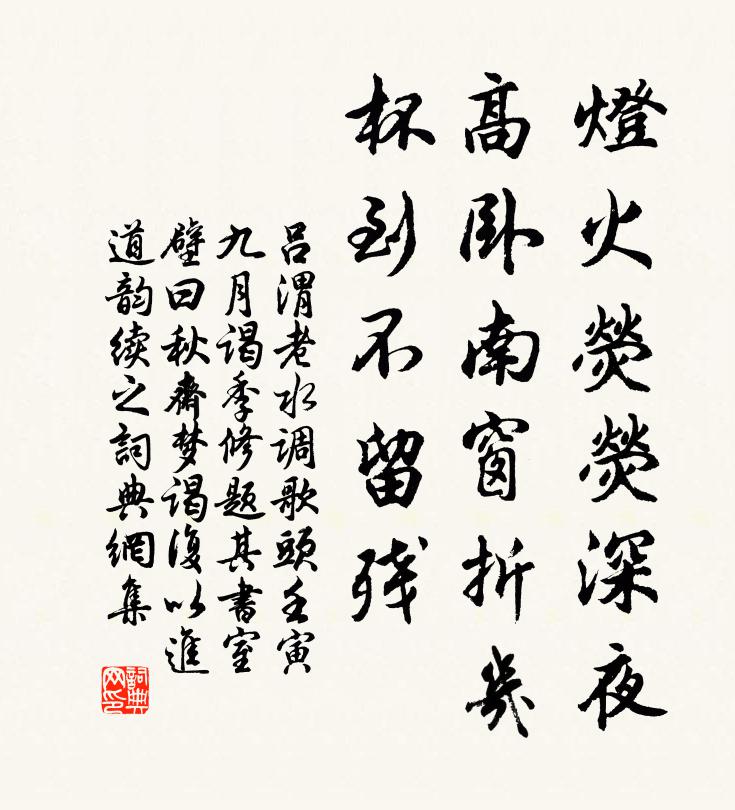 燈火熒熒深夜
高卧南窗折幾
杯到不留残
吕渭老水调歌頭壬寅
九月谒季修题其書室
壁曰秋齋梦谒復以進
道韵续之詞典網集
詞典网印